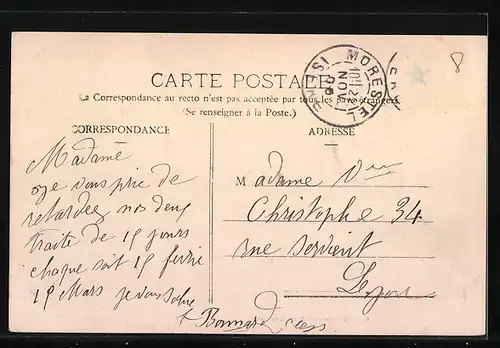 CARTE POSTALE
La Correspondance au recto n'est pas acceptée par tous les pays étrangers.
(Se renseigner à la Poste.)
MORESTEL
ISÈRE
22
NOV
06
CORRESPONDANCE
ADRESSE
Madame
je vous prie de
retardez nos deux
traite de 15 jours
chaque soit 15 février
15 Mars je vous salue
Bonnard
Madame Vve
Christophe 34
rue servient
Lyon